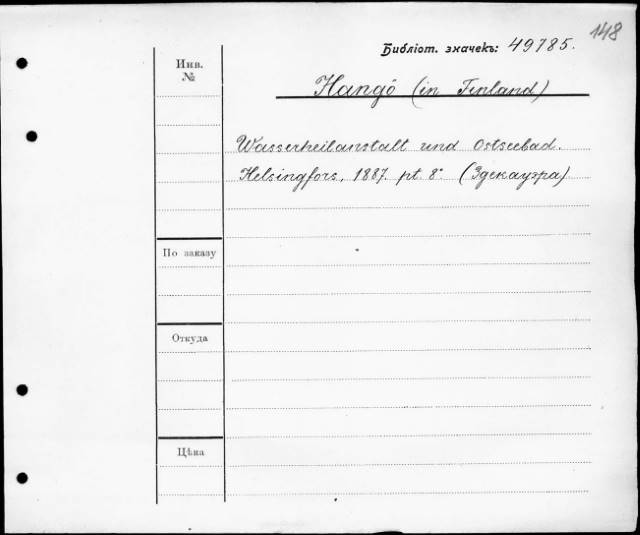 148
Библіот. значекъ: 49785.
Инв.
№
Hangö (in Finland)
Wasserheilanstalt und Ostseebad.
Helsingfors, 1887. pt. 8° (Здекауэра)
По заказу
Откуда
Цѣна